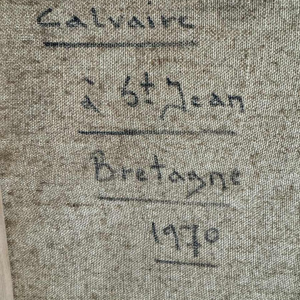 Calvaire
à St Jean
Bretagne
1970